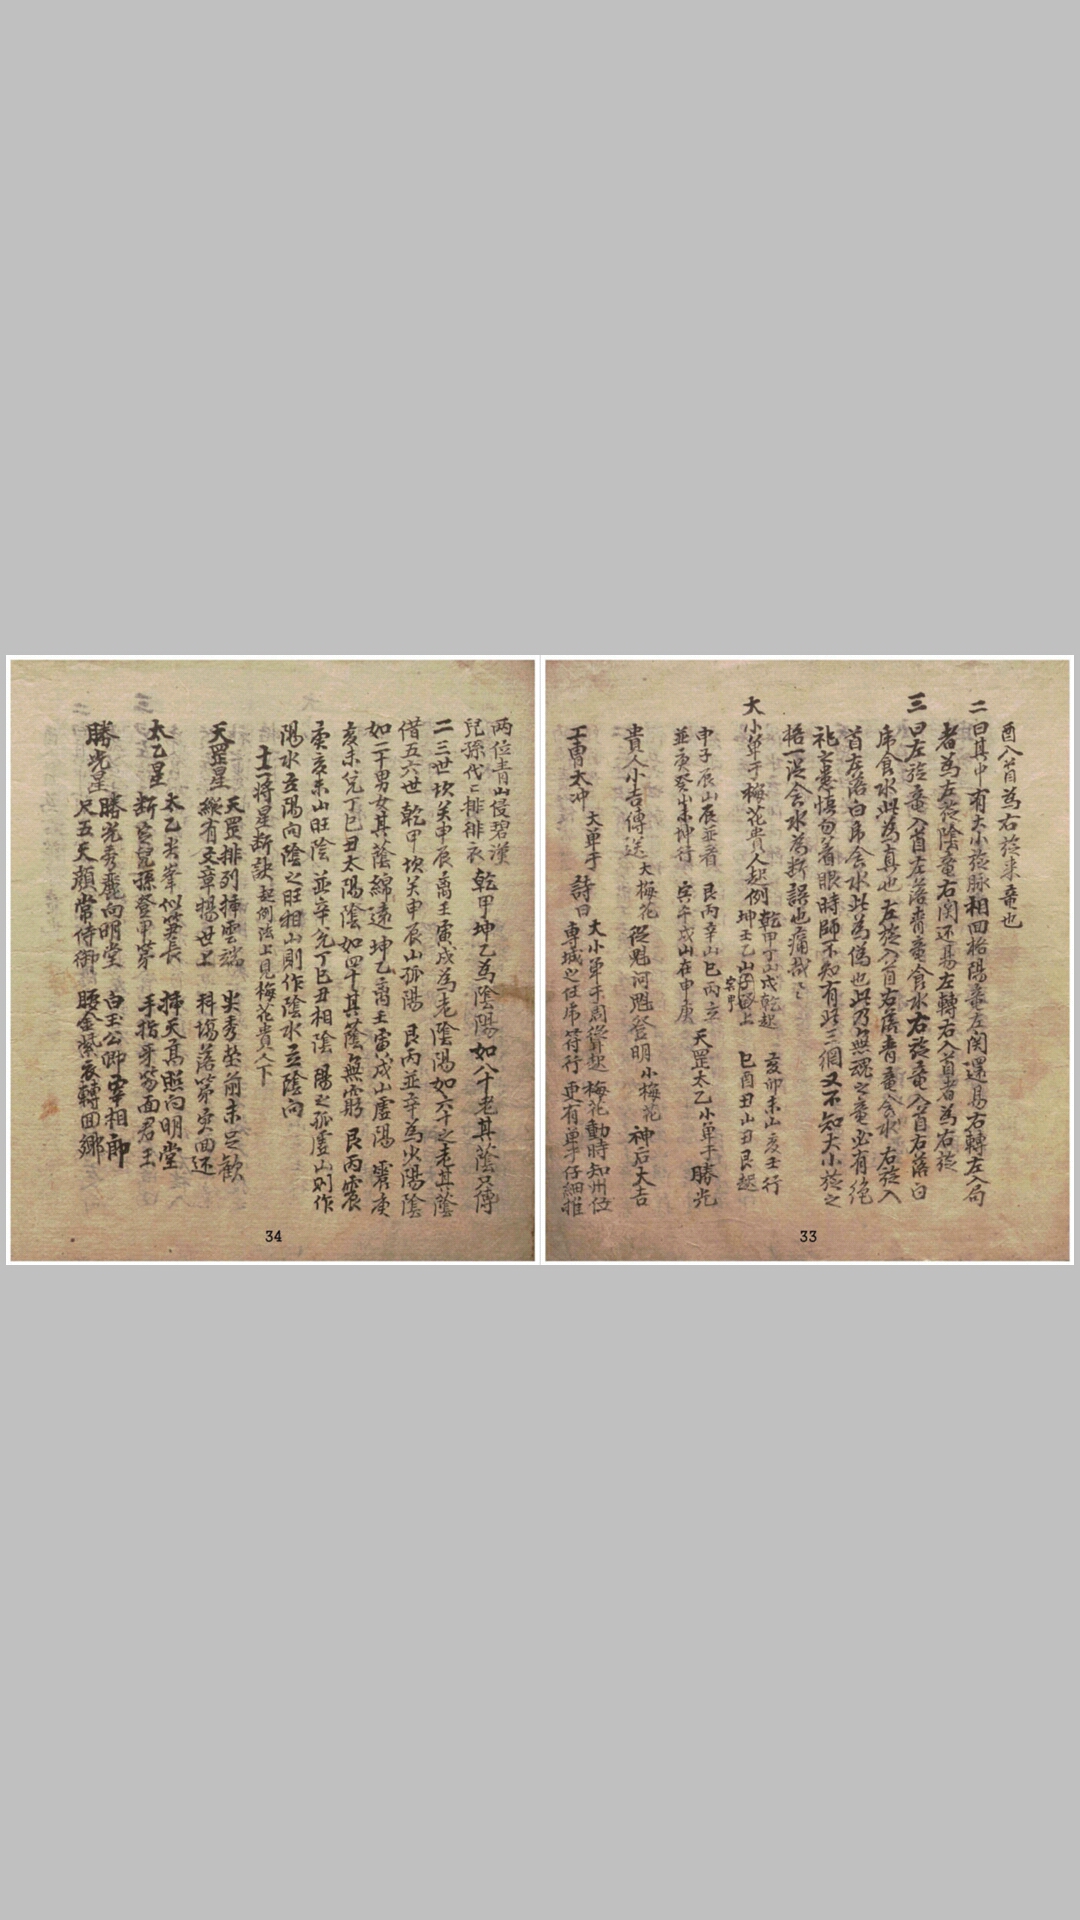 酉入首為右旋来竜也
二曰其中有大小旋脉相四格陽竜左関還易右轉左入局
者為左旋陰竜右関还易左轉右入首者為右旋
三曰左旋竜入首左落青竜食水右旋竜入首右落白
虎食水此為真也左旋入首右落青竜食水右旋入
首左落白虎食水此為偽也此乃無魂之竜必有絶
祀之患慎勿着眼時師不知有此三綱又不知大小旋之
格一混食水為断誤也痛哉〻
大小单于梅花貴人起例
乾甲丁山戌乾起 亥卯未山亥壬行
坤壬乙山上 巳酉丑山丑艮起
申子辰山辰並者 艮丙辛山巳丙立
並庚癸山未坤行 寅午戌山在申庚
天罡太乙小单于勝光
貴人小吉傳送大梅花從魁河魁登明小梅花神后大吉
功曹太冲大单于詩曰
大小单于周從起梅花動時知州位
專城之任虎符行更有单于仔細推
33
两位青山侵碧漢
兒孫代〻排徘衣乾甲坤乙為陰陽如八十老其蔭只傳
二三世坎癸申辰离壬寅戌為老陰陽如六十之老其蔭
借五六世乾甲坎癸申辰山孤陽艮丙並辛為少陽陰
如二十男女其蔭綿遠坤乙离壬寅戌山虛陽震庚
亥未兌丁巳丑太陽陰如四十其蔭無窮艮丙震
庚亥未山旺陰並辛兌丁巳丑相陰陽之孤虛山則作
陽水立陽向陰之旺相山則作陰水立陰向
十二将星断訣起例法上見梅花貴人下
天罡星
天罡排列揷雲端 尖秀塋前未足歓
縱有文章揚世上 科場落第寅面还
太乙星
太乙尖峯似筆長 揷天高照向明堂
断定兒孫登甲第 手指牙笏面君王
勝光星
勝光秀麗向明堂 白玉公卿宰相郎
尺五天顔常侍御 腰金紫衣轉回鄉
34